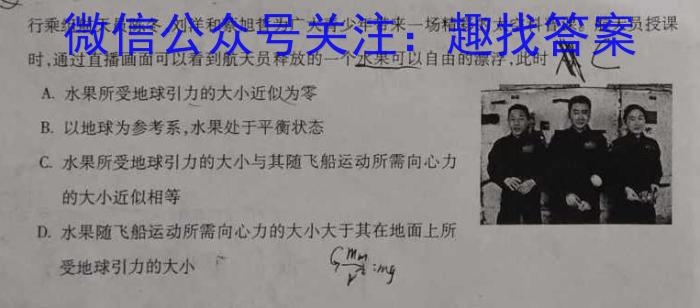 微信公众号关注：趣找答案
航天员授课
时,通过直播画面可以看到航天员释放的一个水果可以自由的漂浮,此时
A. 水果所受地球引力的大小近似为零
B. 以地球为参考系,水果处于平衡状态
C. 水果所受地球引力的大小与其随飞船运动所需向心力
的大小近似相等
D. 水果随飞船运动所需向心力的大小大于其在地面上所
受地球引力的大小